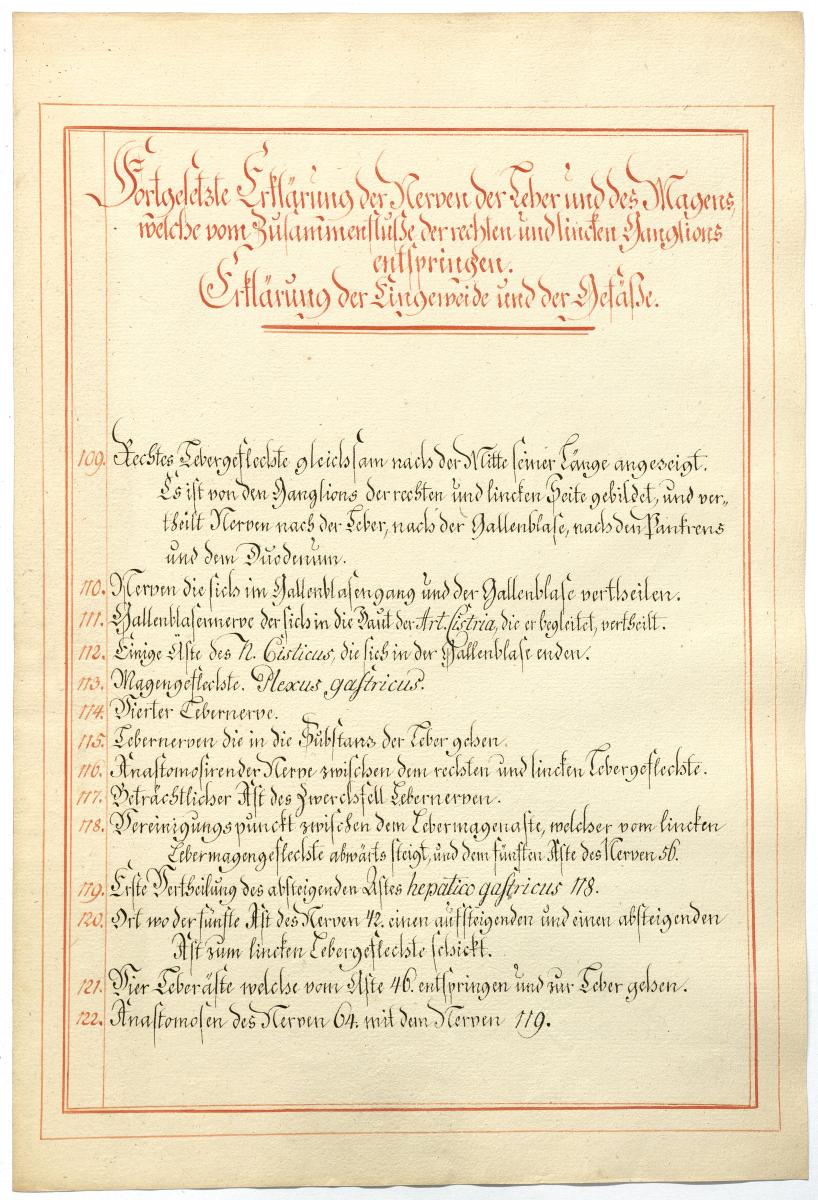 Fortgesetzte Erklärung der Nerven der Leber und des Magens,
welche vom Zusammenfluße der rechten und lincken Ganglions
entspringen.
Erklärung der Eingeweide und der Gefäße.
109. Rechtes Lebergeflechte gleichsam nach der Mitte seiner Länge angezeigt.
Es ist von den Ganglions der rechten und lincken Seite gebildet, und ver-
theilt Nerven nach der Leber, nach der Gallenblase, nach den Pankrens
und dem Duodenum.
110. Nerven die sich im Gallenblasengang und der Gallenblase vertheilen.
111. Gallenblasennerve der sich in die Haut der Art. Cistria, die er begleitet, vertheilt.
112. Einige Äste des N. Cisticus, die sich in der Gallenblase enden.
113. Magengeflechte. Plexus gastricus.
114. Vierter Lebernerve.
115. Lebernerven die in die Substanz der Leber gehen.
116. Anastomosirender Nerve zwischen dem rechten und lincken Lebergeflechte.
117. Beträchtlicher Ast des Zwerchfell Lebernerven.
118. Vereinigungspunckt zwischen dem Lebermagenaste, welcher vom lincken
Lebermagengeflechte abwärts steigt, und dem fünften Aste des Nerven 56.
119. Erste Vertheilung des absteigenden Astes hepatico gastricus 118.
120. Ort wo der fünfte Ast des Nerven 42. einen aufsteigenden und einen absteigenden
Ast zum lincken Lebergeflechte schickt.
121. Vier Leberäste welche vom Aste 46. entspringen und zur Leber gehen.
122. Anastomosen des Nerven 64. mit dem Nerven 119.